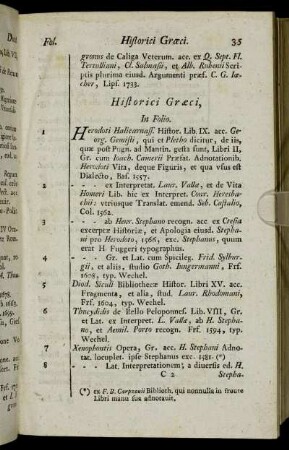 Fol. Historici Græci. 35
gronus de Caliga Veterum. acc. ex Q. Sept. Fl.
Tertulliani, Cl. Salmasii, et Alb. Rubenii Scri-
ptis plurima eiusd. Argumenti præf. C. G. Iœ-
cher, Lips. 1733.
Historici Græci,
In Folio.
1 Herodoti Halicarnass. Histor. Lib. IX. acc. Ge-
org. Gemisti, qui et Pletho dicitur, de iis,
quæ post Pugn. ad Mantin. gesta sunt, Libri II,
Gr. cum Ioach. Camerii Præfat. Adnotationib.
Herodoti Vita, deque Figuris, et qua vsus est
Dialecto, Bas. 1557.
2 - - ex Interpretat. Laur. Vallæ, et de Vita
Homeri Lib. hic ex Interpret. Conr. Heresba-
chii: vtriusque Translat. emend. Seb. Castalio,
Col. 1562.
3 - - ab Henr. Stephano recogn. acc. ex Ctesia
excerptæ Historiæ, et Apologia eiusd. Stepha-
ni pro Herodoto, 1566, exc. Stephanus, quum
erat H. Fuggeri typographus.
4 - - Gr. et Lat. cum Spicileg. Frid. Sylbur-
gii, et aliis, studio Goth. Iungermanni, Frf.
1608, typ. Wechel.
5 Diod. Siculi Bibliothecæ Histor. Libri XV. acc.
Fragmenta, et alia, stud. Laur. Rhodomani,
Frf. 1604, typ. Wechel.
6 Thucydidis de Bello Peloponnes. Lib. VIII, Gr.
et Lat. ex Interpret. L. Vallæ, ab H. Stepha-
no, et Aemil. Porto recogn. Frf. 1594, typ.
Wechel.
7 Xenophontis Opera, Gr. acc. H. Stephani Adno-
tat. locuplet. ipse Stephanus exc. 1581. (*)
8 - - Lat. Interpretationem, a diuersis ed. H.
C 2 Stepha-
(*) ex F. B. Carpzouii Biblioth. qui nonnulla in fronte
Libri manu sua adnotauit.